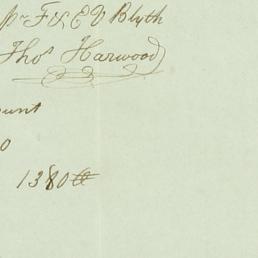 pr F & E V Blyth
Thos Harwood
ount
0
1380